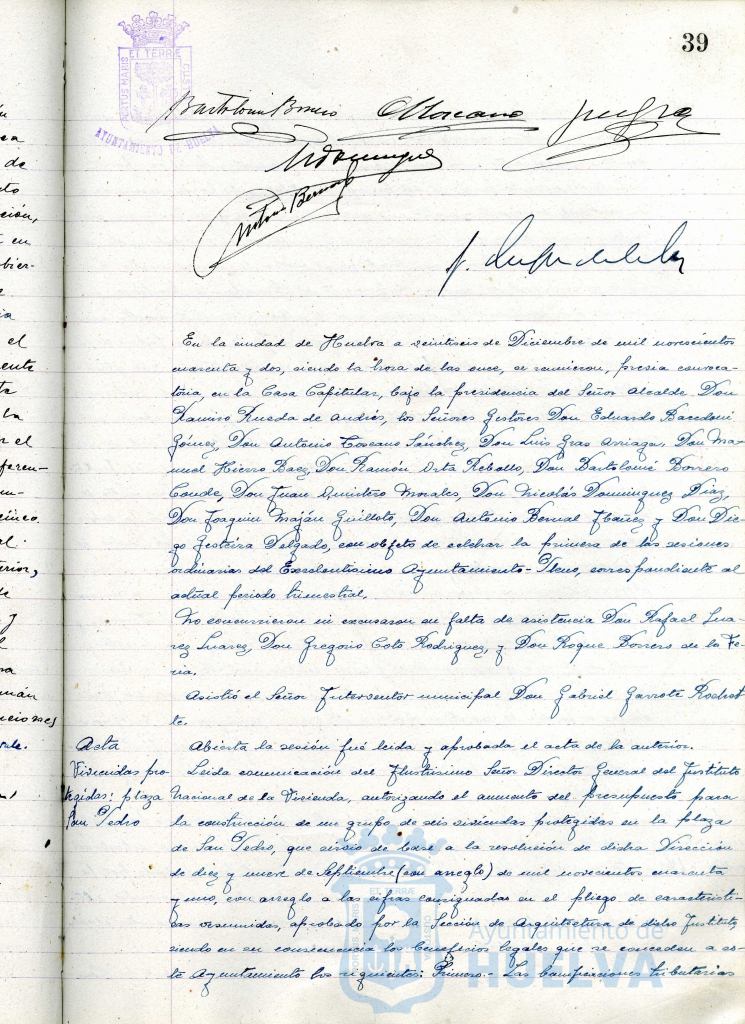 39
PORTUS MARIS ET TERRÆ CUSTODIA
AYUNTAMIENTO DE HUELVA
Bartolomé Borrero
A Toscano
N Dominguez
Antonio Bernal
En la ciudad de Huelva a veintiseis de Diciembre de mil novecientos
cuarenta y dos, siendo la hora de las once, se reunieron, previa convoca-
toria, en la Casa Capitular, bajo la presidencia del Señor Alcalde Don
Ramiro Rueda de Andrés, los Señores Gestores Don Eduardo
Gómez, Don Antonio Toscano Sánchez, Don Luis Gras Arriaga, Don Ma-
nuel Hierro Baez, Don Ramón Orta Rebollo, Don Bartolomé Borrero
Conde, Don Juan Quintero Morales, Don Nicolás Dominguez Diaz,
Don Joaquin Maján Guilloto, Don Antonio Bernal Ibañez y Don Die-
go Gesteira Delgado, con objeto de celebrar la primera de las sesiones
ordinarias del Excelentisimo Ayuntamiento-Pleno, correspondiente al
actual periodo trimestral.
No concurrieron ni excusaron su falta de asistencia Don Rafael Sua-
rez Suarez, Don Gregorio Coto Rodriguez, y Don Roque Borrero de la Fe-
ria.
Asistió el Señor Interventor municipal Don Gabriel Garrote
te.
Acta
Abierta la sesión fué leida y aprobada el acta de la anterior.
Viviendas pro-
tegidas: plaza
San Pedro
Leida comunicación del Ilustrisimo Señor Director General del Instituto
Nacional de la Vivienda, autorizando el aumento del presupuesto para
la construcción de un grupo de seis viviendas protegidas en la plaza
de San Pedro, que sirvió de base a la resolución de dicha Dirección
de diez y nueve de Septiembre (con arreglo) de mil novecientos cuarenta
y uno, con arreglo a las cifras consignadas en el pliego de caracteristi-
cas resumidas, aprobado por la Sección de Arquitectura de dicho Instituto,
siendo en su consecuencia los beneficios legales que se conceden a es-
te Ayuntamiento los siguientes: Primero.- Las bonificaciones tributarias
Ayuntamiento de
HUELVA